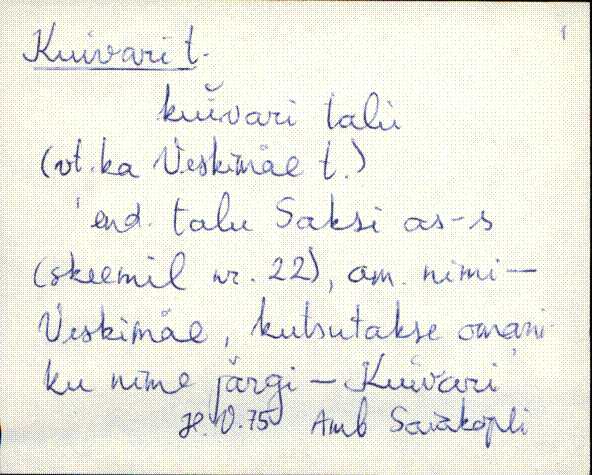 1
Kuivari t.
kuĭvari talu
(vt. ka Veskimäe t.)
end. talu Saksi as-s
(skeemil nr. 22), am. nimi —
Veskimäe, kutsutakse omani-
ku nime järgi — Kuivari
75 Amb